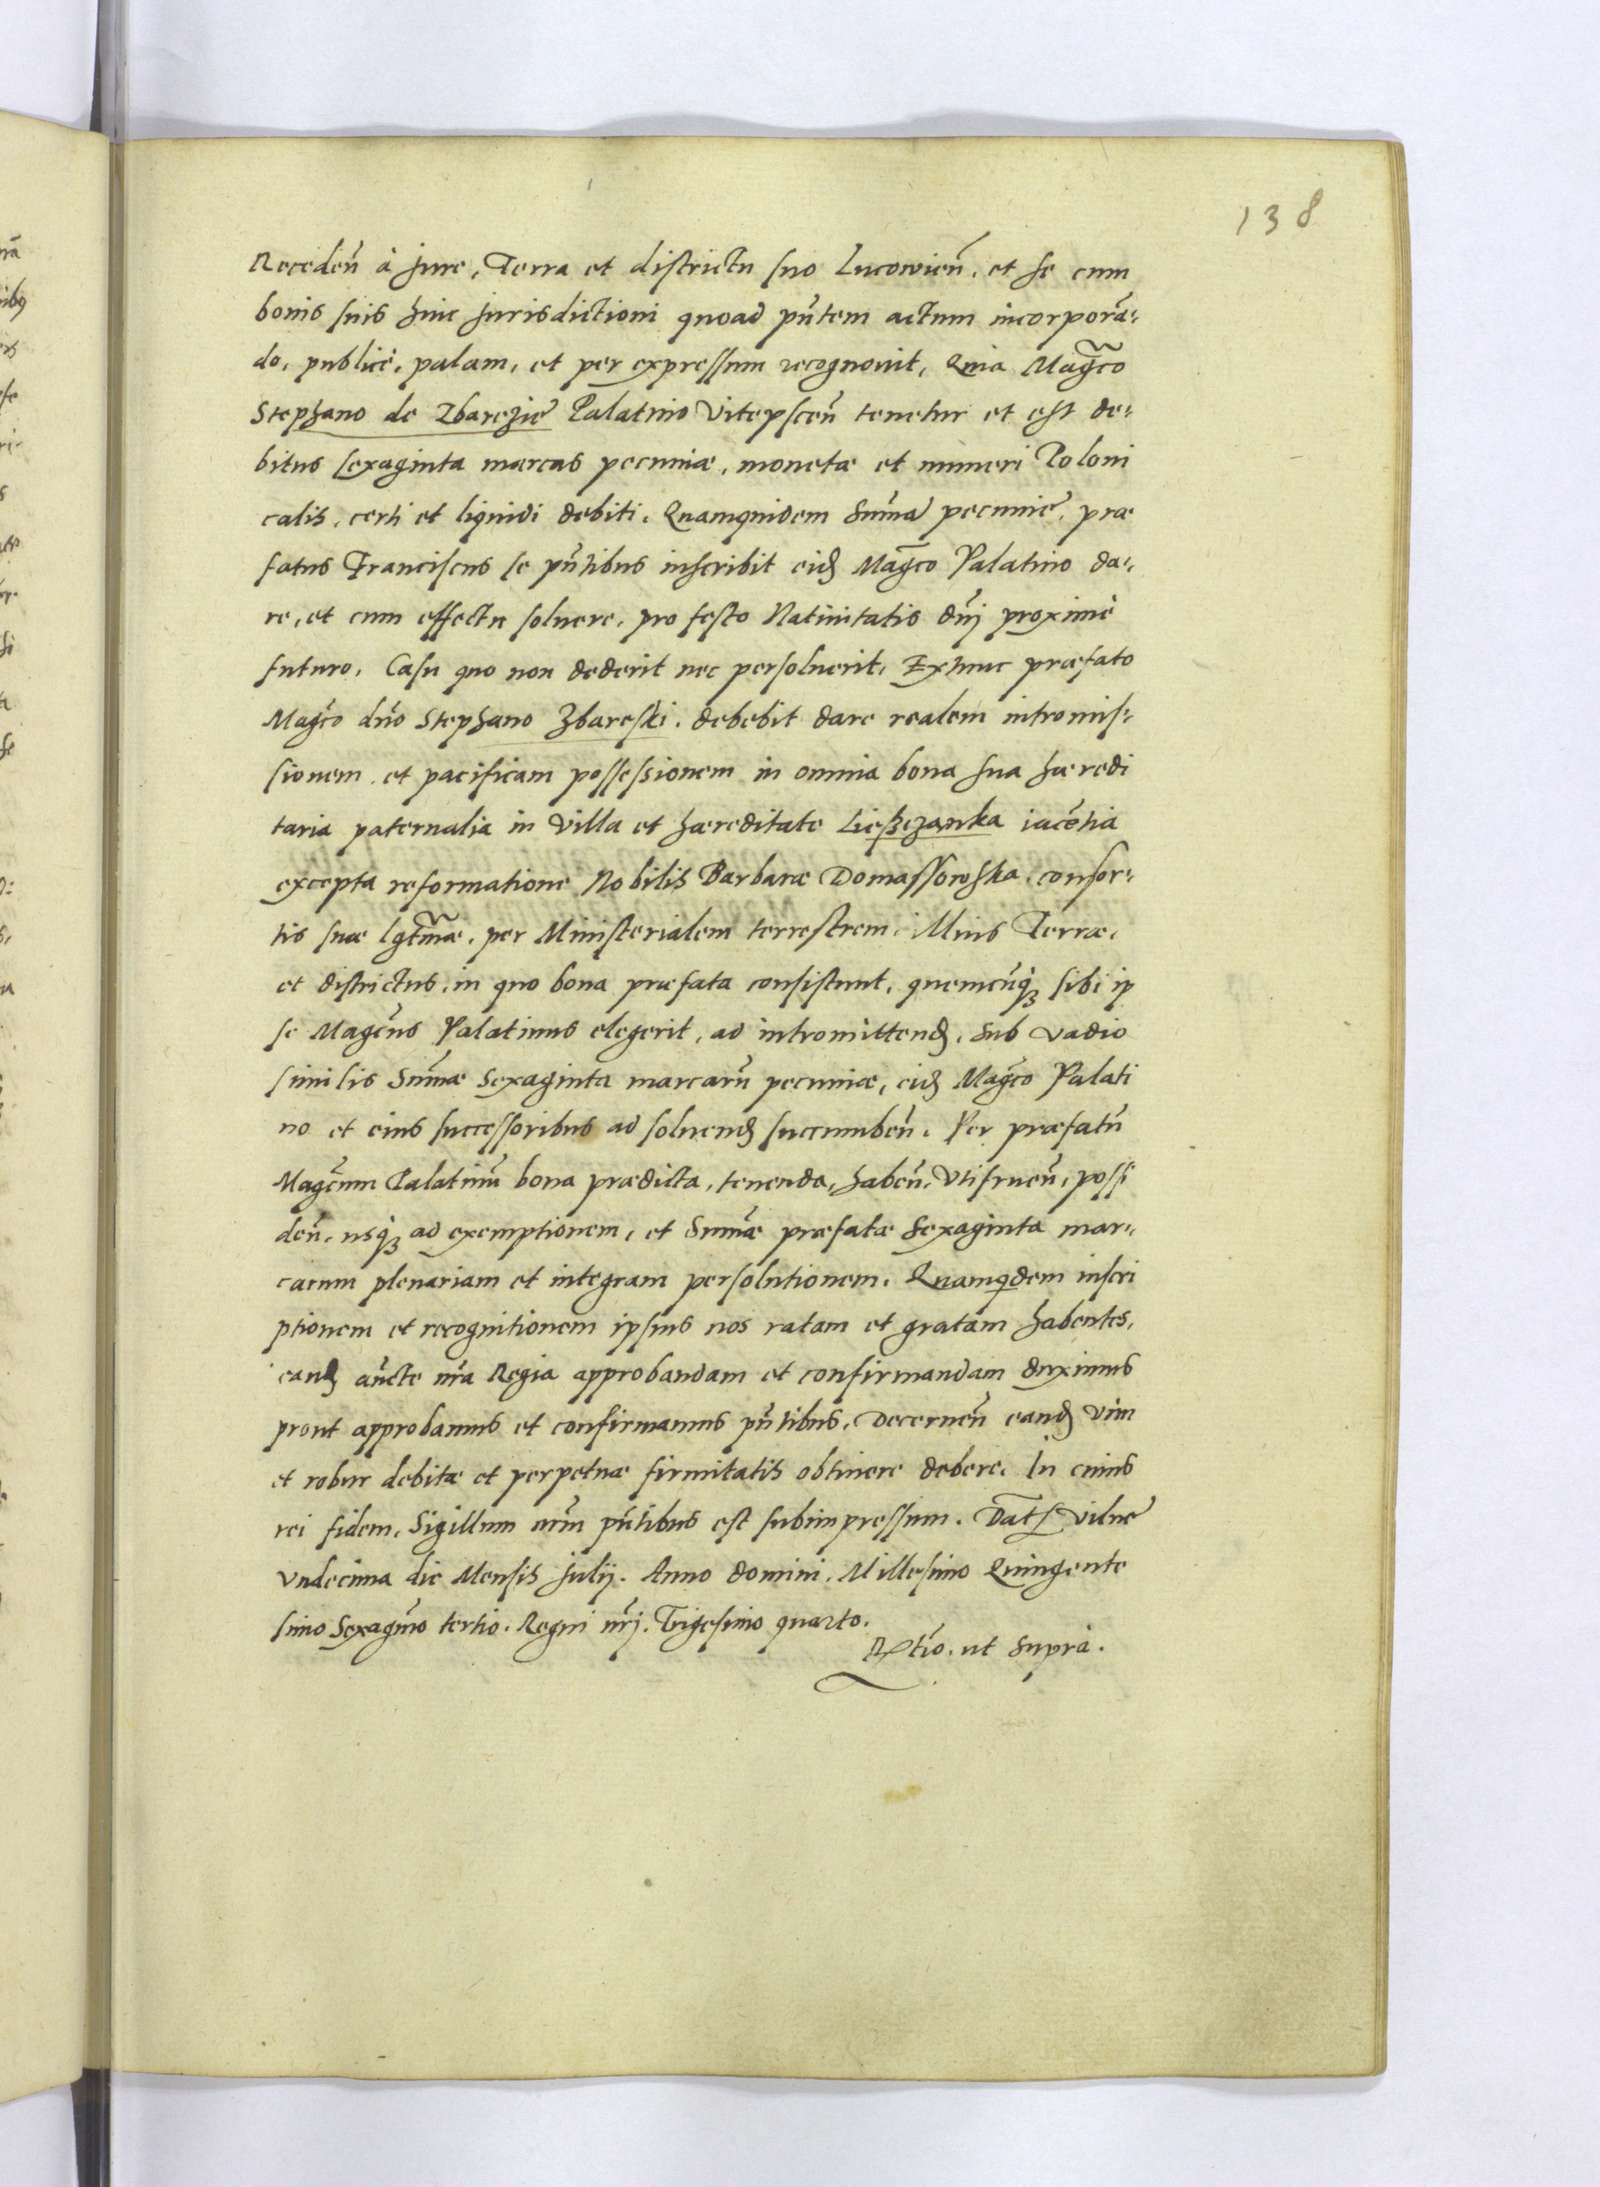 138
Receden̄ à Jure, Terra et districtu suo Lucowien̄, et se cum
bonis suis huic Jurisdictioni quoad pn̄tem actum incorporā-
do, publicè, palam, et per expressum recognovit, Quia Mag̃co
Stephano de Zbarezie Palatino Vitepscen̄ tenetur et est de-
bitus sexaginta marcas pecuniæ, monetæ et numeri Poloni
calis, certi et liquidi debiti. Quamquidem Sum̄ā pecunie, præ
fatus Franciscus se pn̄tibus inscribit eid̃ Mag̃co Palatino da-
re, et cum effectu soluere, pro festo Natiuitatis dn̄j proximè
futuro. Casu quo non dederit nec persoluerit, Extunc præfato
Mag̃co dn̄o Stephano Zbareski, debebit dare realem intromis-
sionem et pacificam possessionem in omnia bona sua hæredi
taria paternalia in Villa et hæreditate Lieszczanka iacētia
excepta reformatione Nobilis Barbaræ Domassowska, consor-
tis suæ lgt̃mæ, per Ministerialem terrestrem illius Terræ,
et districtus, in quo bona præfata consistunt, quemcūq̨ sibi ip
se Magc̄us Palatinus elegerit, ad intromittend̃, Sub vadio
similis Sum̄æ Sexaginta marcarū pecuniæ, eid̃ Mag̃co Palati
no et eius successoribus ad soluend̃ succumben̄. Per præfatū
Magc̄um Palatinū bona prædicta, tenenda, haben̄, Vtifruen̄, possi
den̄, usq̨ ad exemptionem, et Sum̄æ præfatæ Sexaginta mar-
carum plenariam et integram persolutionem. Quamqdem inscri
ptionem et recognitionem ipsius nos ratam et gratam habentes,
eand̃ auc̄te nr̄a Regia approbandam et confirmandam duximus
prout approbamus et confirmamus pn̄tibus, Decernen̄ eand̃ vim
et robur debitæ et perpetuæ firmitatis obtinere debere. In cuius
rei fidem, Sigillum nrm̄ pn̄tibus est subimpressum. Dat̃ Vilne
Vndecima die Mensis Julij. Anno Domini. Millesimo Quingente
simo Sexagm̄o tertio. Regni nr̄j. Trigesimo quarto.
Rtio. ut Suprà.